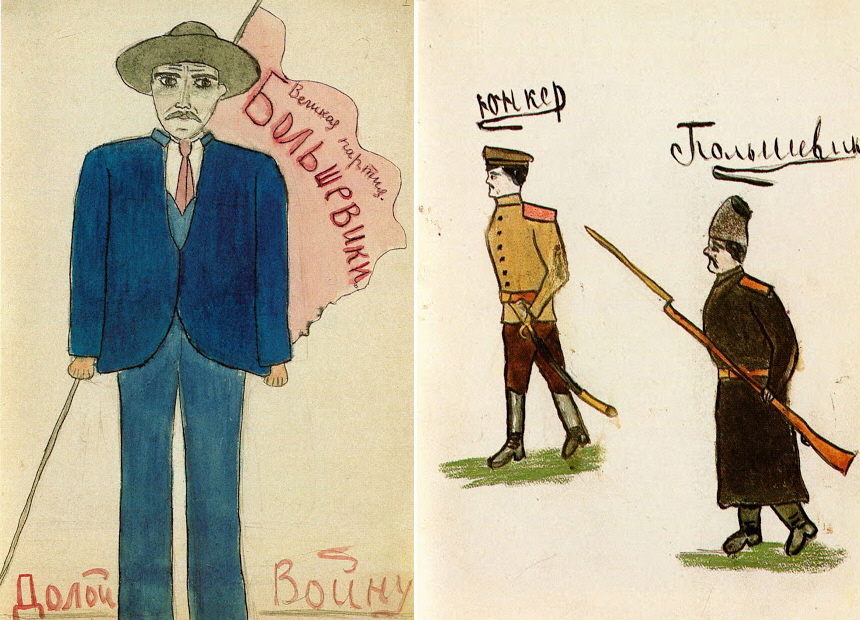 Великая партия.
Большевики
Долой Войну
юнкер
Большевик